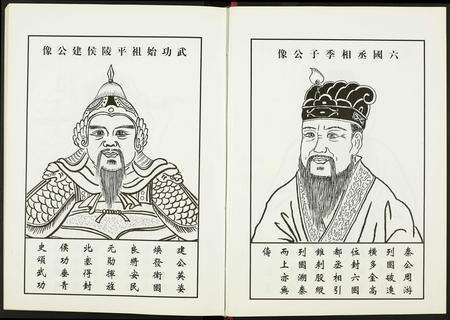 六國丞相季子公像
秦公周游
列國破連
橫多金高
位封六國
都丞相引
錐刺股縱
列國溯秦
而上亦無
儔
武功始祖平陵侯建公像
建公英姿
煥發衛國
良將安民
元勛揮旌
北塞得封
侯功垂青
史頌武功